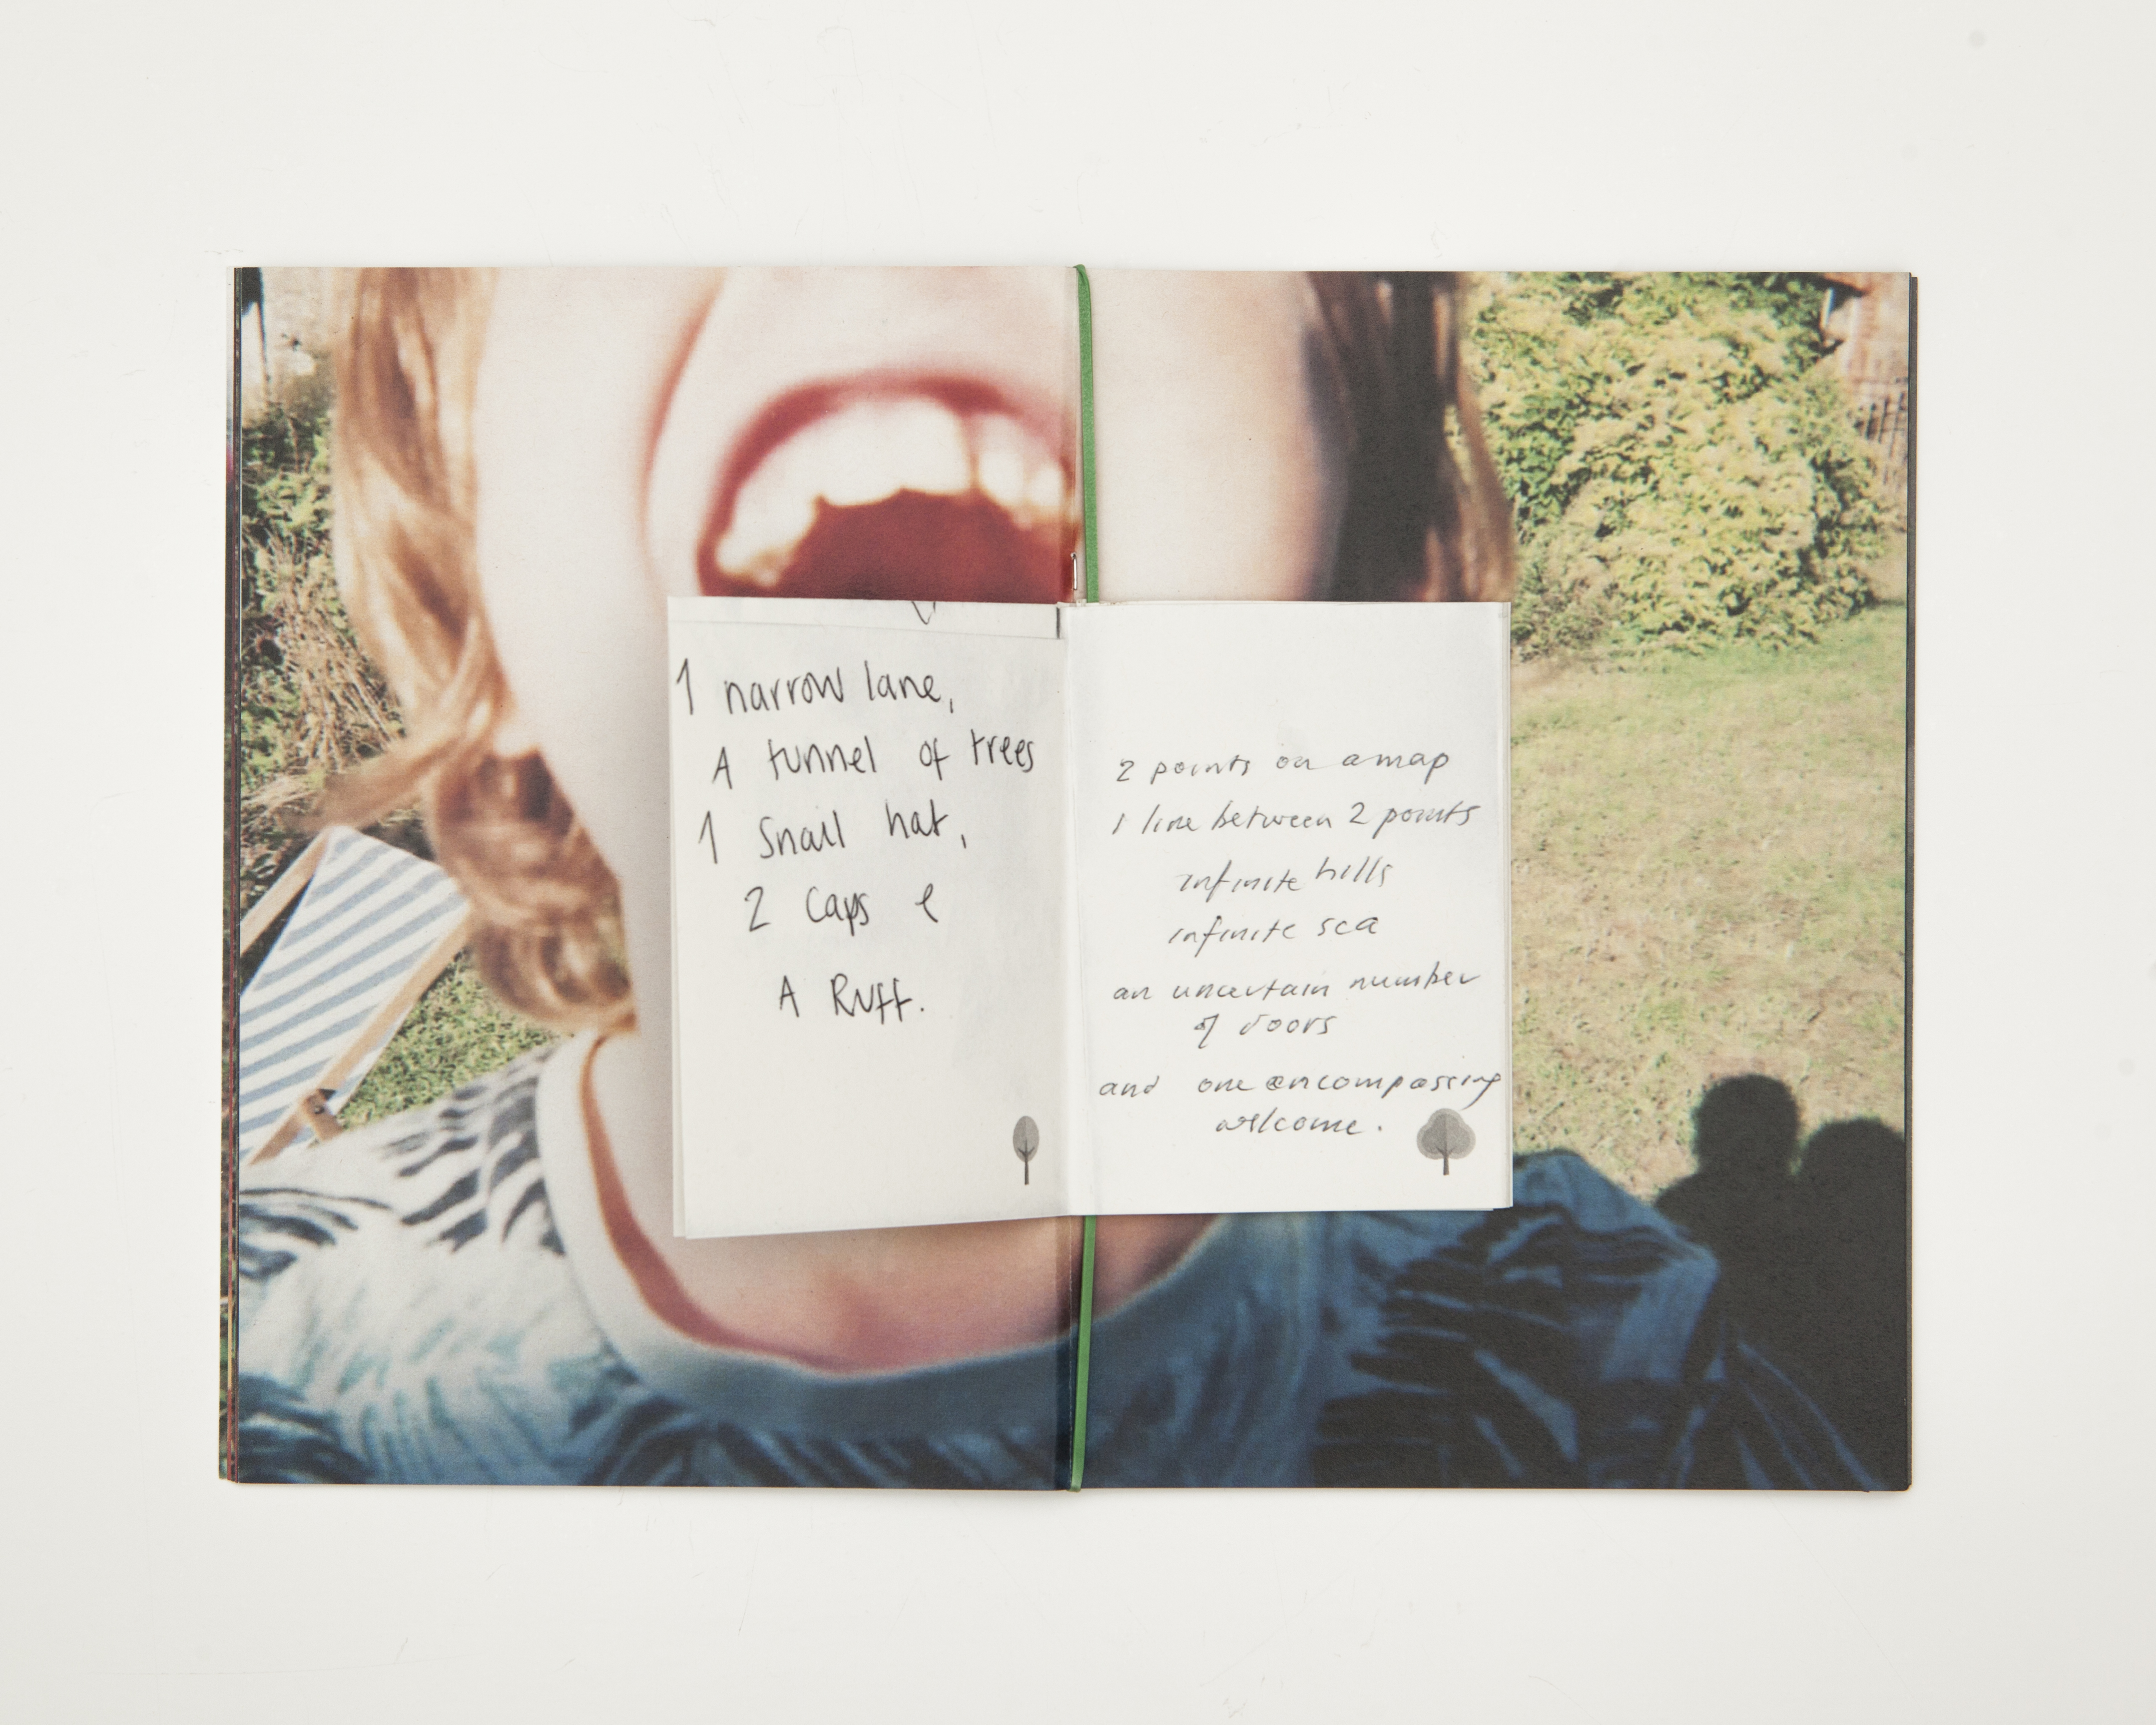 1 narrow lane,
A tunnel of trees
1 Snail hat,
2 Caps e
A Ruff.
2 points on a map
1 line between 2 points
infinite hills
infinite sea
an uncertain number
of doors
and one encompassing
welcome.